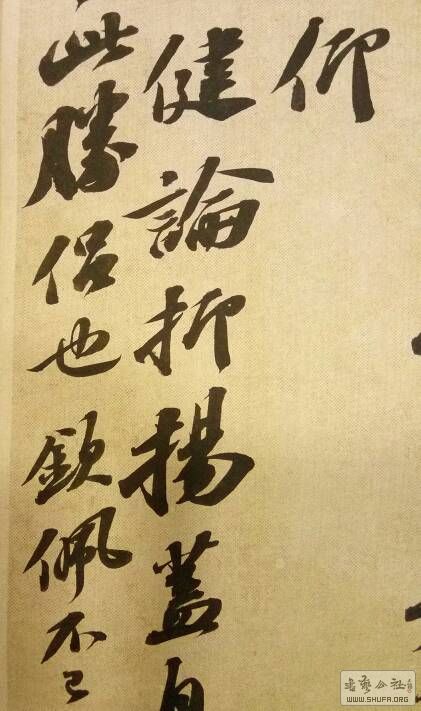 仰
健論抑揚蓋自
此勝侶也欽佩不已
书艺公社
WWW.SHUFA.ORG